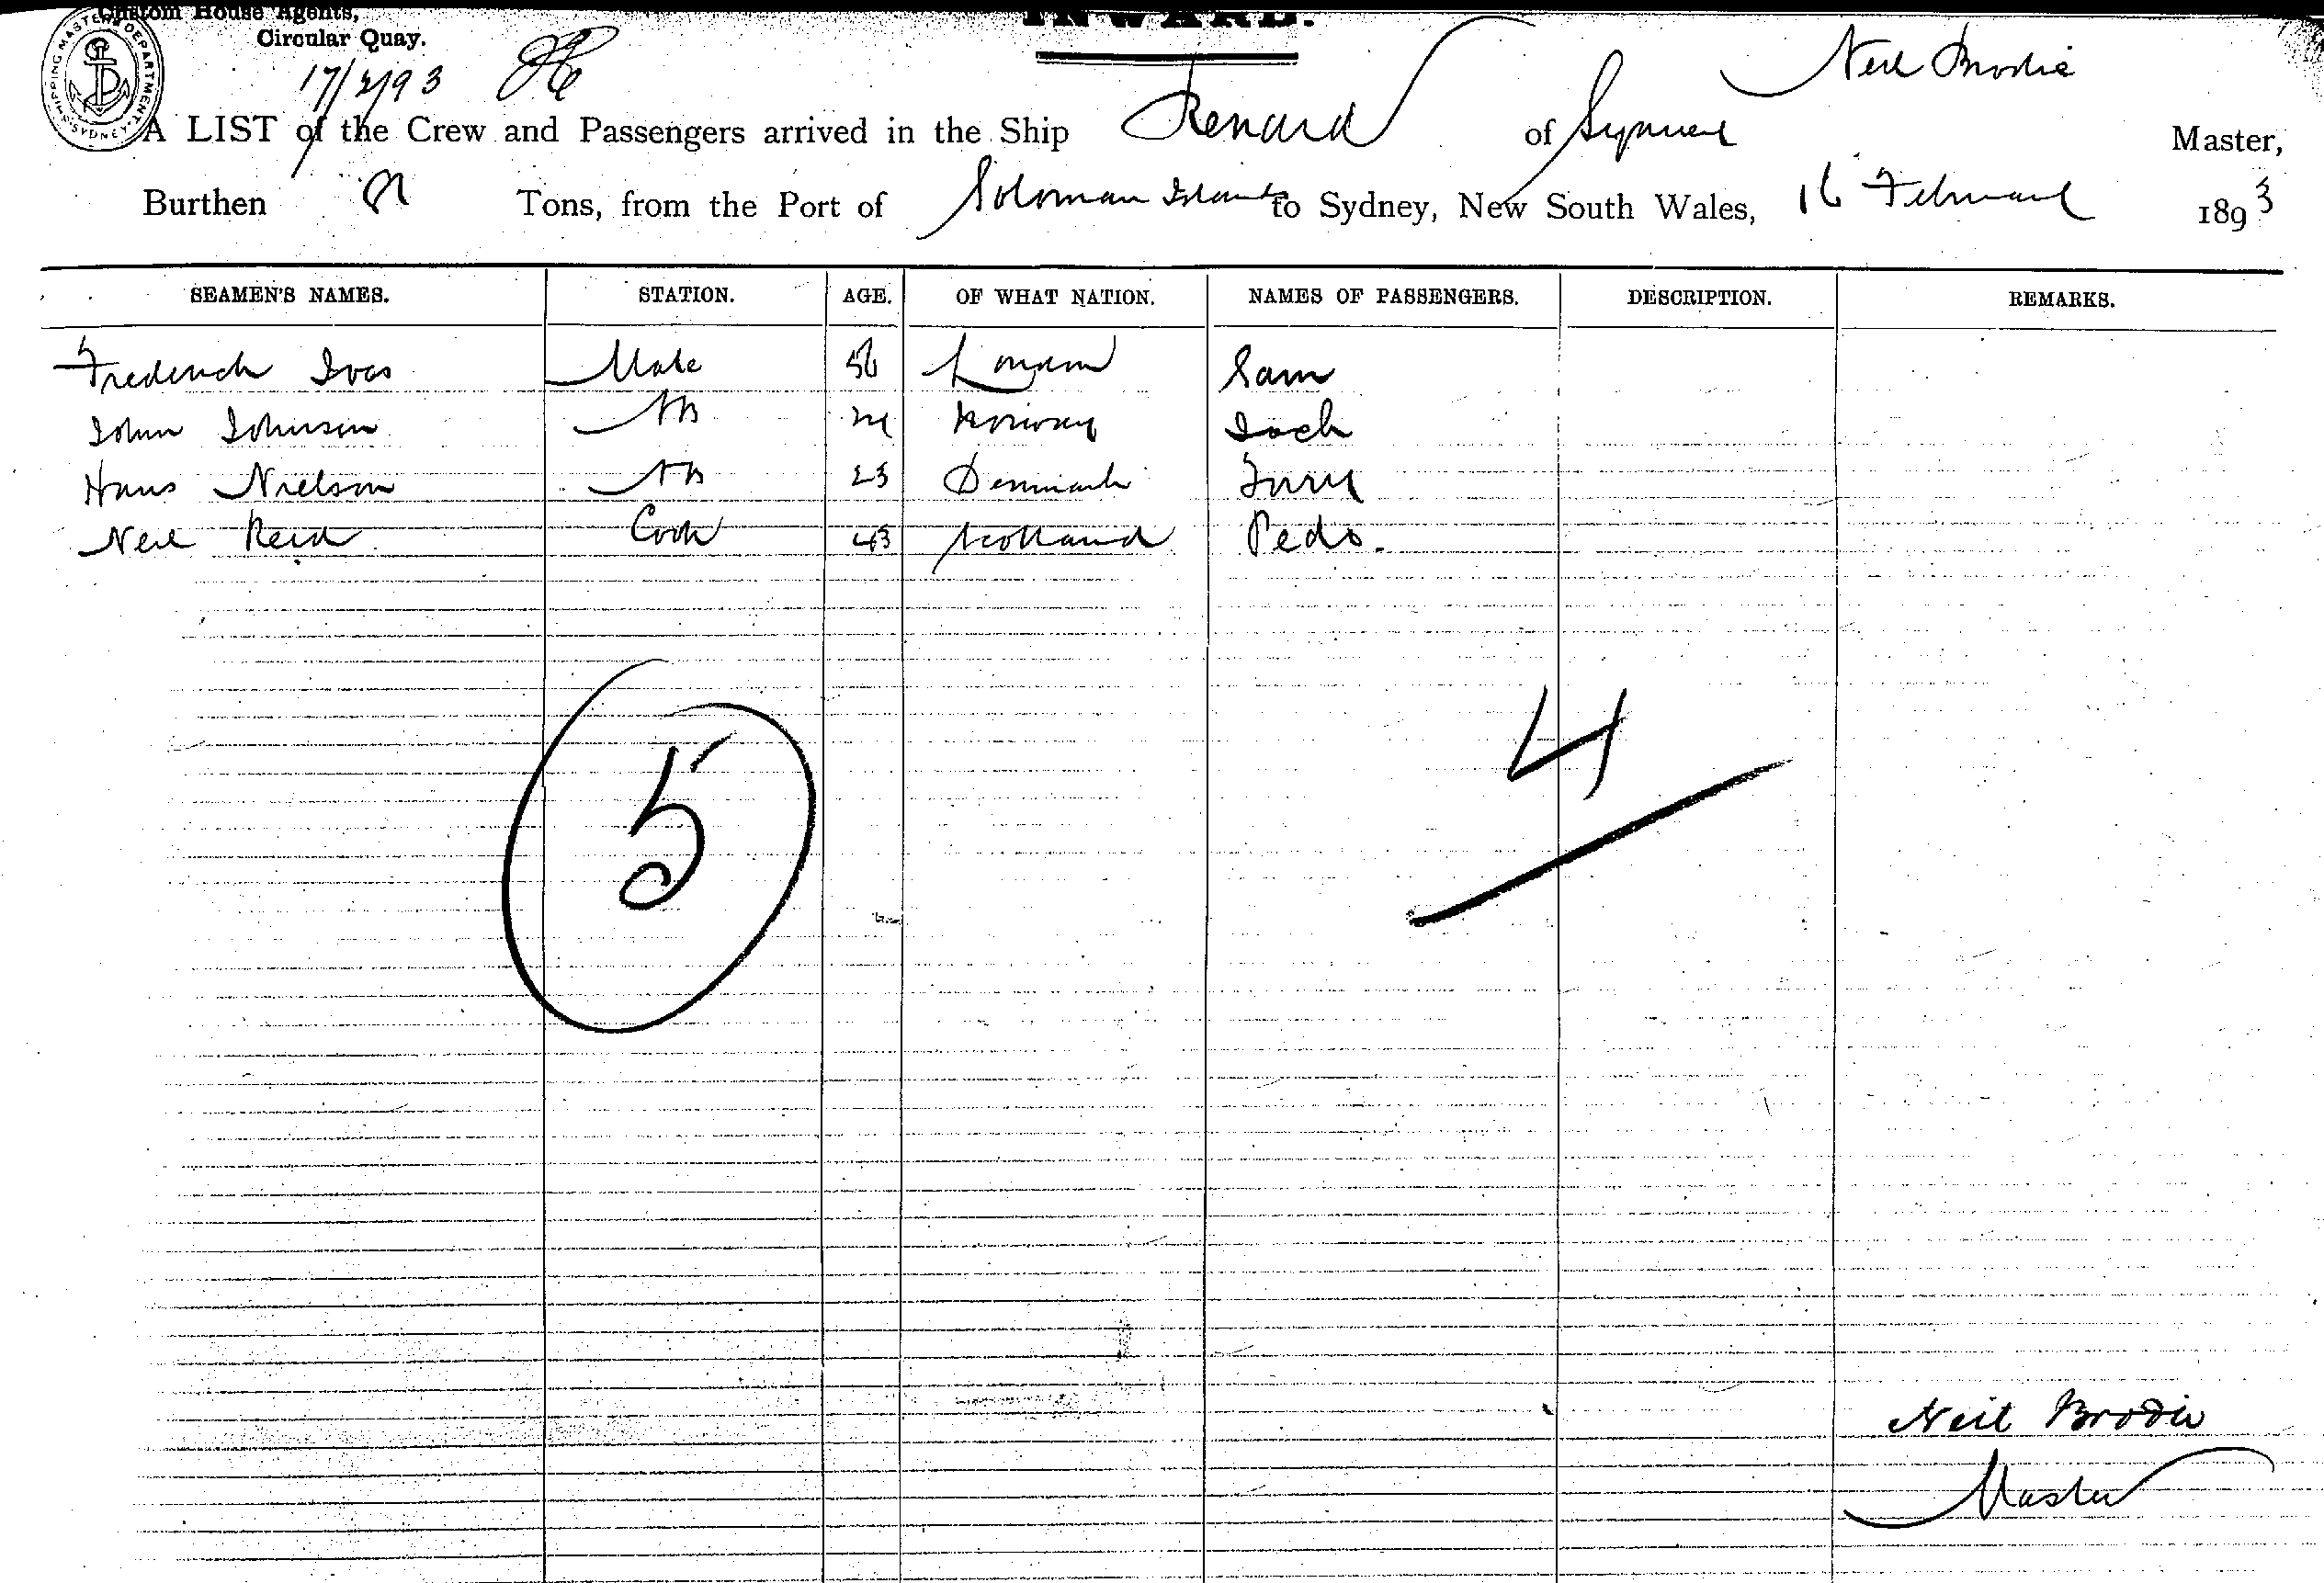 Custom House Agents,
Circular Quay.
INWARD.
SHIPPING MASTERS DEPARTMENT SYDNEY
17/2/93
Neil Brodie
A LIST of the Crew and Passengers arrived in the Ship Renard of Sydney Master,
Burthen Tons, from the Port of Soloman Islands to Sydney, New South Wales, 16 February 1893
SEAMEN'S NAMES. STATION. AGE. OF WHAT NATION. NAMES OF PASSENGERS. DESCRIPTION. REMARKS.
Frederick Ives Mate 56 London Sam
John Johnson AB Norway Jack
Hans Nielson AB 23 Denmark
Neil Reid Cook 43 Scotland Pedo.
5
4
Neil Brodie
Master